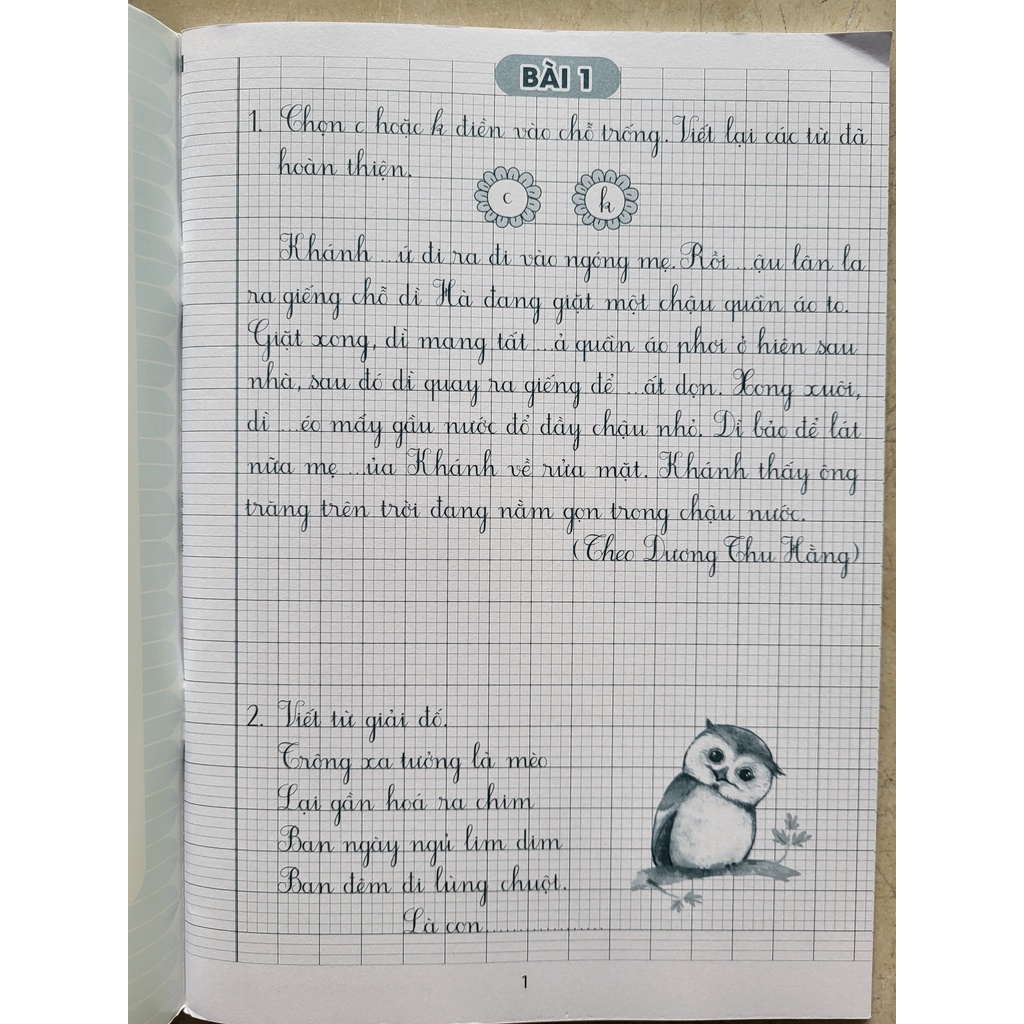 BÀI 1
1. Chọn c hoặc k điền vào chỗ trống. Viết lại các từ đã
hoàn thiện.
c k
Khánh ...ứ đi ra đi vào ngóng mẹ. Rồi ...ậu lân la
ra giếng chỗ dì Hà đang giặt một chậu quần áo to.
Giặt xong, dì mang tất ...ả quần áo phơi ở hiên sau
nhà, sau đó dì quay ra giếng để ...ất dọn. Xong xuôi,
dì ...éo mấy gầu nước đổ đầy chậu nhỏ. Dì bảo để lát
nữa mẹ ...ủa Khánh về rửa mặt. Khánh thấy ông
trăng trên trời đang nằm gọn trong chậu nước.
(Theo Dương Thu Hằng)
2. Viết từ giải đố.
Trông xa tưởng là mèo
Lại gần hoá ra chim
Ban ngày ngủ lim dim
Ban đêm đi lùng chuột.
Là con....................
1